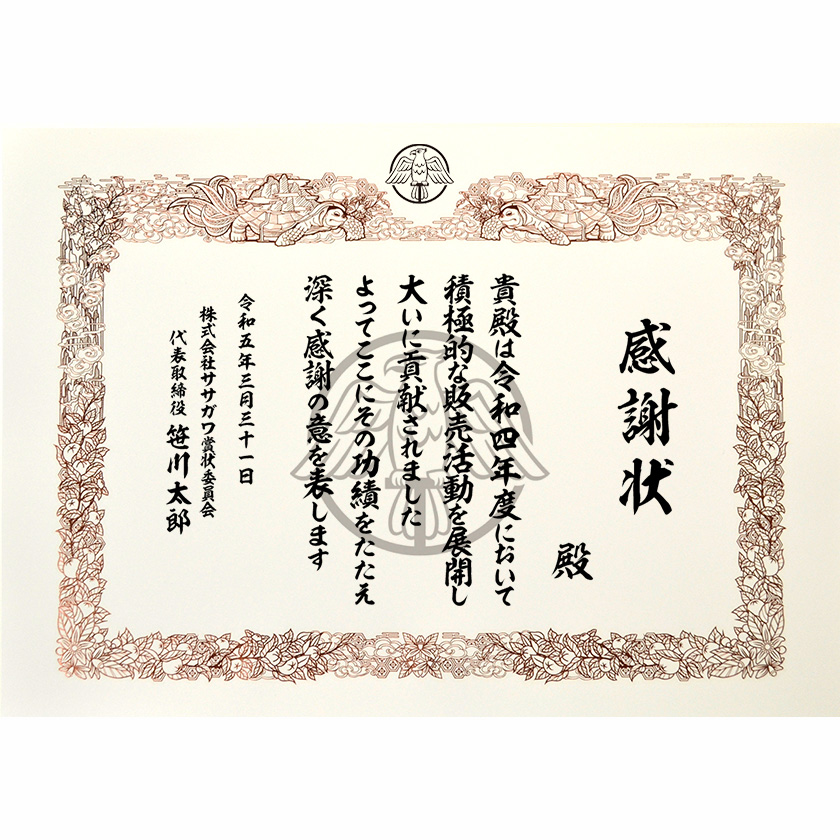 感謝状
殿
貴殿は令和四年度において
積極的な販売活動を展開し
大いに貢献されました
よってここにその功績をたたえ
深く感謝の意を表します
令和五年三月三十一日
株式会社ササガワ賞状委員会
代表取締役 笹川太郎